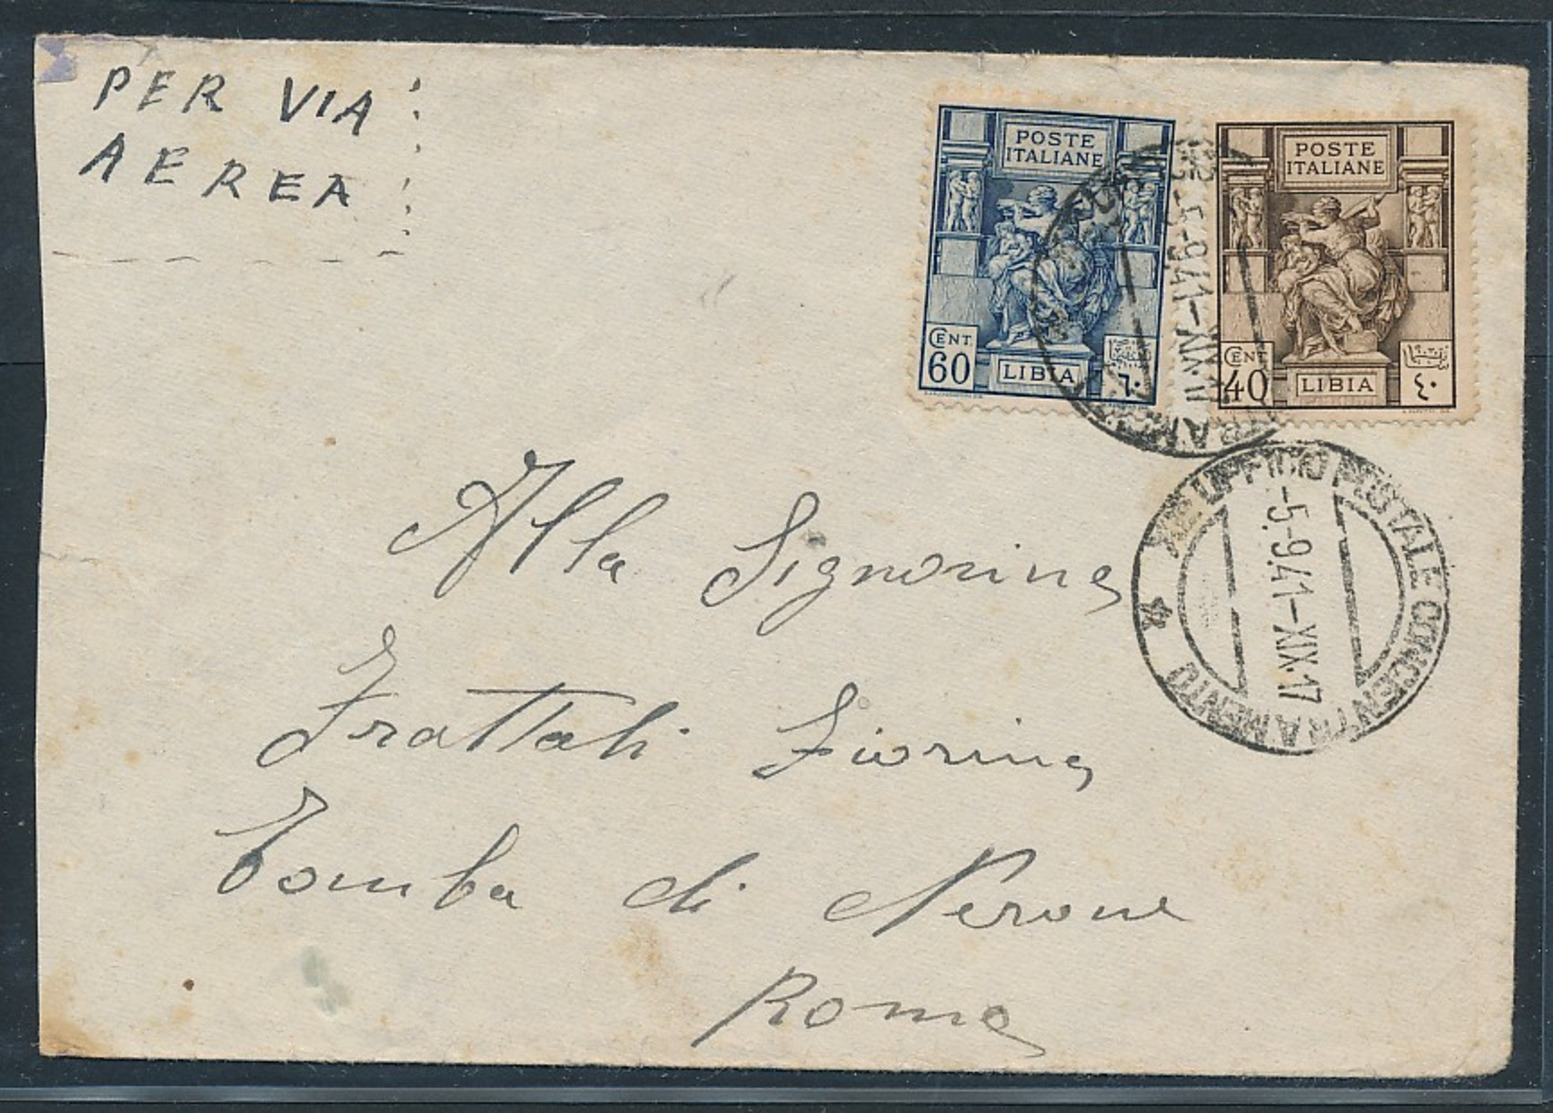 PER VIA
AEREA
POSTE
ITALIANE
CENT
60
LIBIA
٦٠
POSTE
ITALIANE
CENT
40
LIBIA
٤٠
-5.-9.41-XIX.
UFFICIO POSTALE CONCENTRAMENTO
-5.-9.41-XIX.17
Alla Signorina
Frattali Fiorina
Tomba di Nerone
Roma